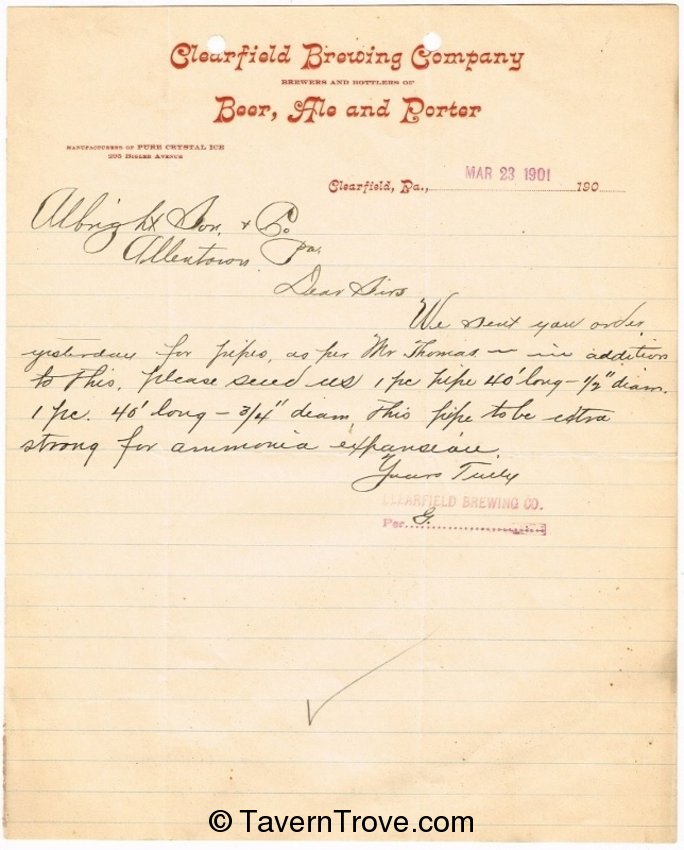 Clearfield Brewing Company
BREWERS AND BOTTLERS OF
Beer, Ale and Porter
MANUFACTURERS OF PURE CRYSTAL ICE
205 BIGLER AVENUE
Clearfield, Pa., MAR 23 1901 190
Albright Son, & Co
Allentown Pa.
Dear Sirs
We sent you order
yesterday for pipes, as per Mr Thomas — in addition
to this, please send us 1 pc pipe 40' long – 1/2" diam.
1 pc. 40' long – 3/4" diam this pipe to be extra
strong for ammonia expansion.
Yours Truly
CLEARFIELD BREWING CO.
Per G.
© TavernTrove.com